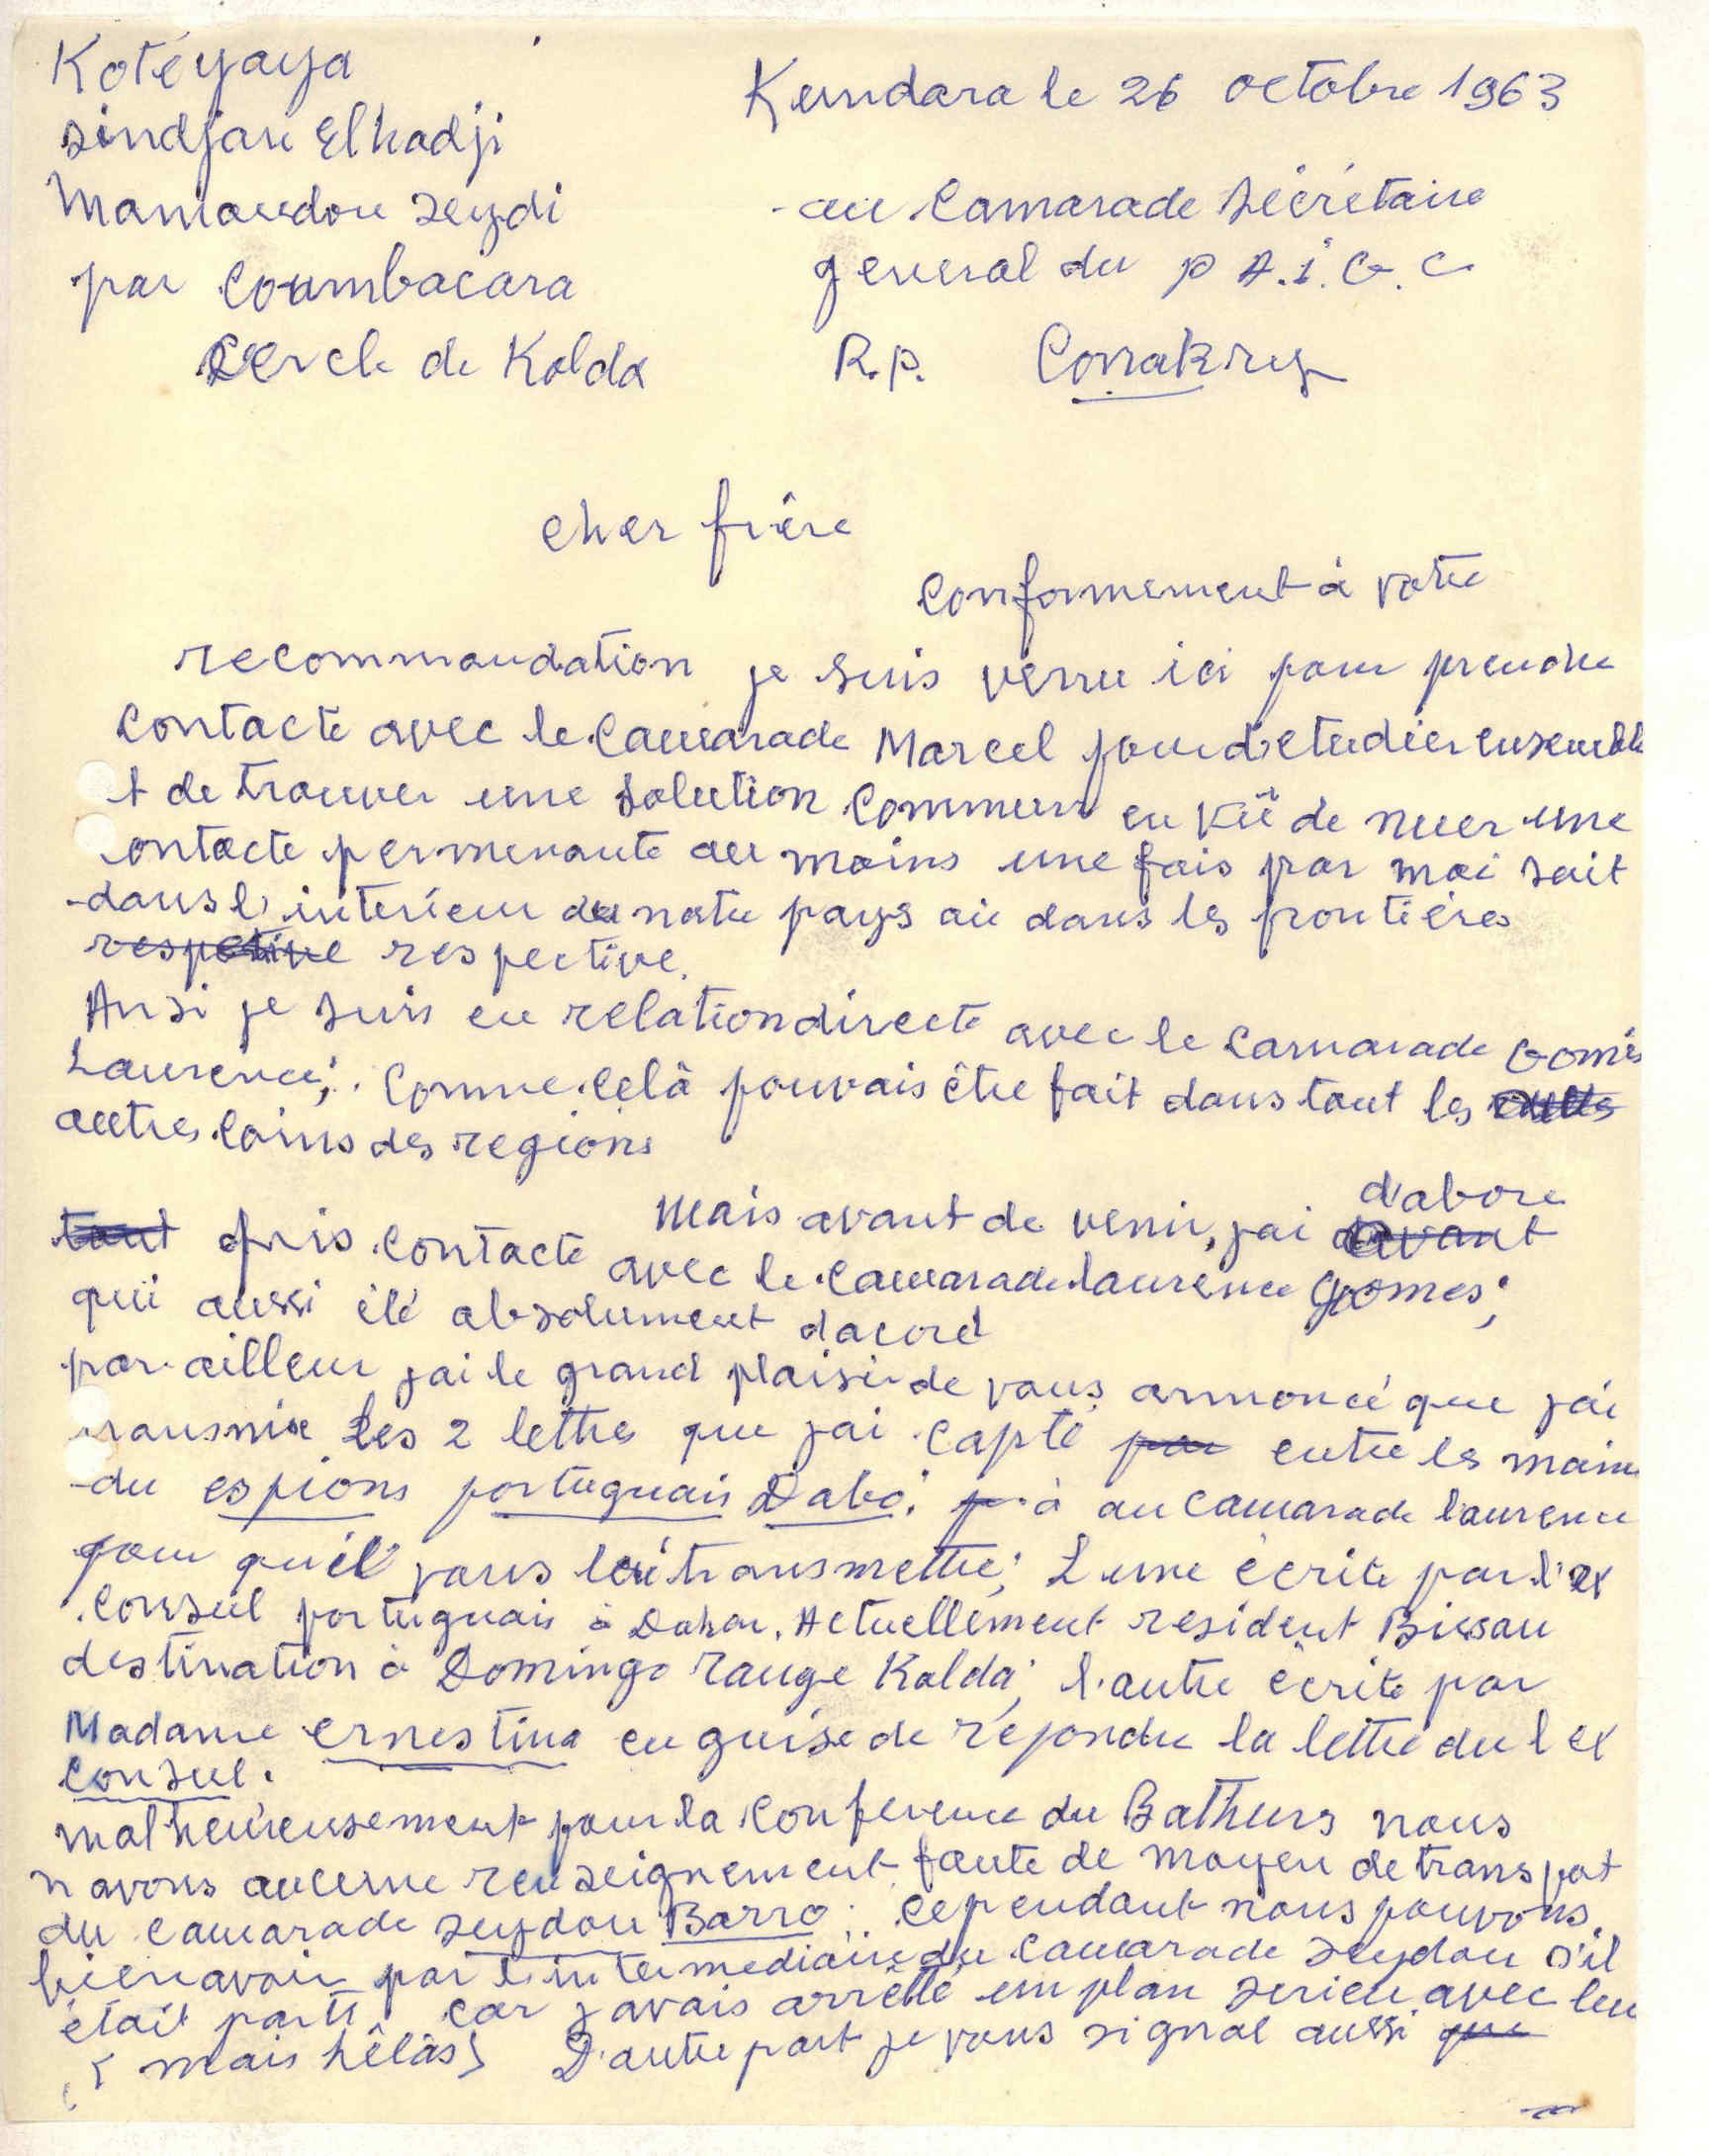 Kotéyaya
sindjan Elhadji
Mamoudou Seydi
par Coumbacara
Cercle de Kolda
Kundara le 26 octobre 1963
au Camarade Sécrétaire
general du P A.I.G.C
R.P. Conakry
cher frère
Conformement à votre
recommandation je suis venu ici pour prendre
Contacte avec le Camarade Marcel pour d'etudier ensemble
t de trouver une solution Commun en vu de nuer une
ontacte permenante au moins une fois par moi soit
dans l'interieur du notre pays où dans les frontières
respetive respective.
Ansi je suis en relation directe avec le Camarade Gomis
Laurence; Comme Celà pouvais être fait dans tout les
autres Coins des regions
Mais avant de venir, jai d'abore avant
tout pris Contacte avec le Camarade laurence Gomes;
qui aussi été absolument dacord
par ailleur jai le grand plaisir de vous annoncé que jai
ransmix Les 2 lettre que jai Capté par entre les mains
du espions portuguais Dabo. p à au Camarade laurence
pour qu'il vous les transmettre; L'une écrite par l'ex
Consul portuguais à Dakar. Actuellement resident Bissau
destination à Domingo Range Kolda; l'autre écrite par
Madame ernestina en guise de repondre la lettre du l ex
Consul.
malheureusement pour la Conference du Bathurs nous
n avons aucune renseignement faute de moyen de transpot
du Camarade seydou Barro. Cependant nous pouvons
bien avoir par l'intermediaire du Camarade Seydou s'il
était parti car j avais arrêtté un plan serieu avec lui
( mais hêlàs) D'autre part je vous signal aussi que